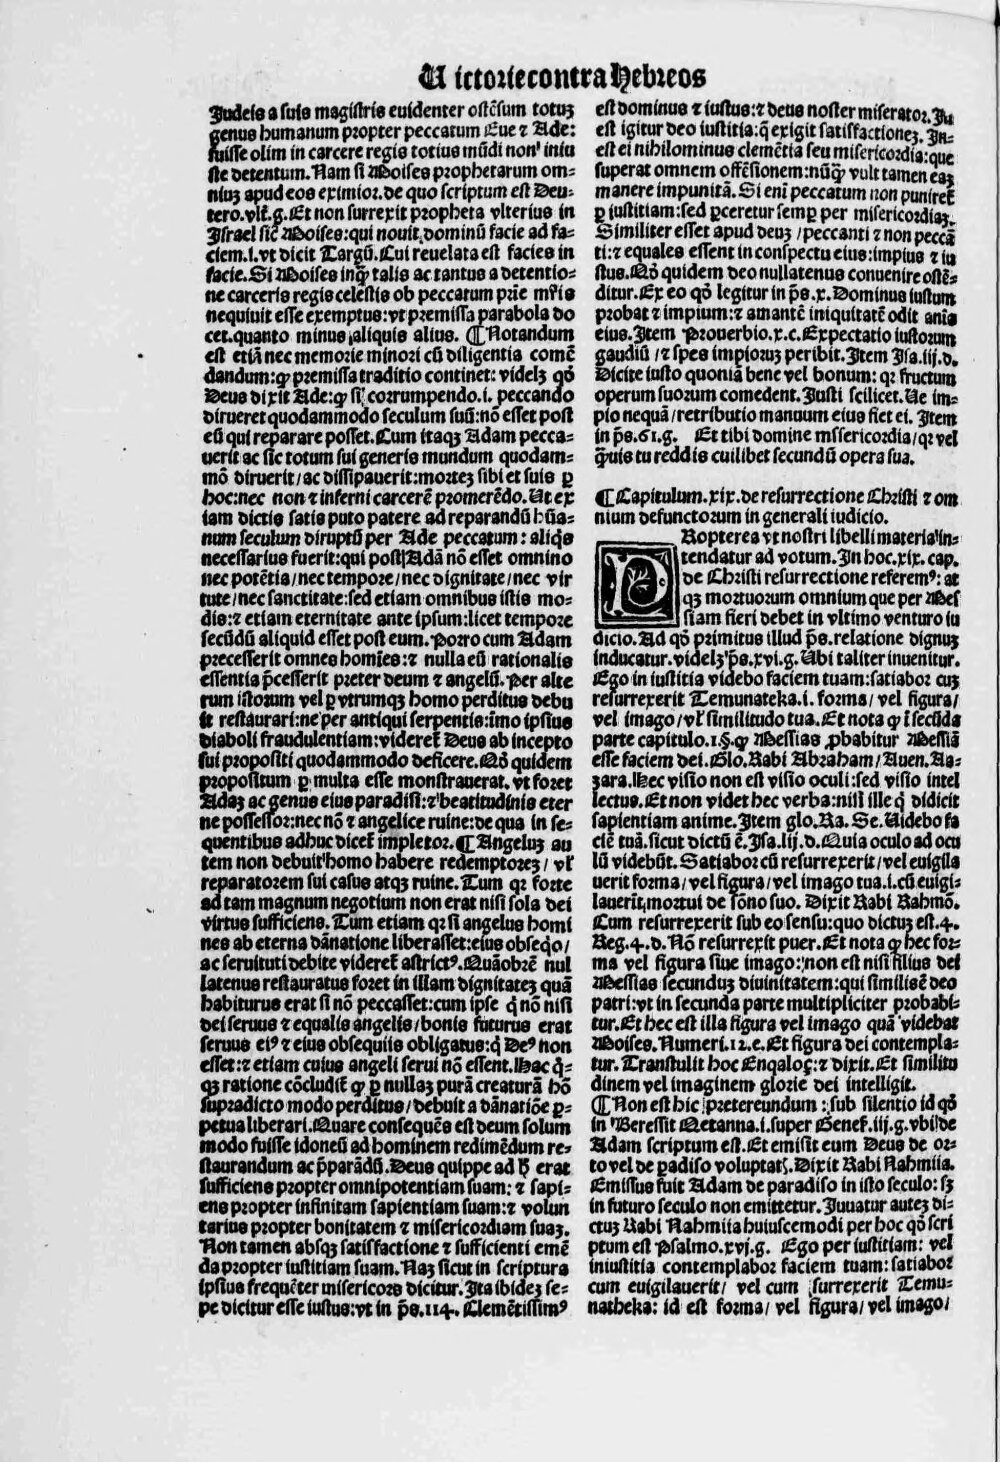 Victorie contra Hebreos
Judeis a suis magistris euidenter ostẽsum totuȝ
genus humanum propter peccatum Eue ⁊ Ade:
fuisse olim in carcere regis totius mũdi non iniu
ste detentum. Nam si Moises prophetarum om-
niuȝ apud eos eximior. de quo scriptum est Deu-
tero. vlt̃. g. Et non surrexit propheta vlterius in
Israel sic̃ Moises: qui nouit dominũ facie ad fa-
ciem. i. vt dicit Targũ. Cui reuelata est facies in
facie. Si Moises inq̃ talis ac tantus a detentio-
ne carceris regis celestis ob peccatum prĩe mr̃is
nequiuit esse exemptus: vt premissa parabola do
cet. quanto minus aliquis alius. ¶ Notandum
est etiã nec memorie minori cũ diligentia comẽ
dandum: ꝙ premissa traditio continet: videlȝ qõ
Deus dixit Ade: ꝙ si corrumpendo. i. peccando
dirueret quodammodo seculum suũ: nõ esset post
eũ qui reparare posset. Cum itaqȝ Adam pecca-
uerit ac sic totum sui generis mundum quodam-
mõ diruerit / ac dissipauerit: morteȝ sibi et suis ꝑ
hoc: nec non ⁊ inferni carcerẽ promerẽdo. Ut ex
iam dictis satis puto patere ad reparandũ hũa-
num seculum diruptũ per Ade peccatum: aliq̃s
necessarius fuerit: qui post Adã nõ esset omnino
nec potẽtia / nec tempore / nec dignitate / nec vir
tute / nec sanctitate: sed etiam omnibus istis mo-
dis: ⁊ etiam eternitate ante ipsum: licet tempore
secũdũ aliquid esset post eum. Porro cum Adam
precesserit omnes homĩes: ⁊ nulla eũ rationalis
essentia p̃cesserit preter deum ⁊ angelũ. Per alte
rum istorum vel ꝑ vtrumqȝ homo perditus debu
it restaurari: ne per antiqui serpentis: ĩmo ipsius
diaboli fraudulentiam: videret̃ Deus ab incepto
sui propositi quodammodo deficere. Qõ quidem
propositum ꝑ multa esse monstrauerat. vt foret
Adaȝ ac genus eius paradisi: ⁊ beatitudinis eter
ne possessor: nec nõ ⁊ angelice ruine: de qua in se-
quentibus adhuc dicet̃ impletor. ¶ Angelus au
tem non debuit homo habere redemptoreȝ / vl̃
reparatorem sui casus atqȝ ruine. Tum qr forte
ad tam magnum negotium non erat nisi sola dei
virtus sufficiens. Tum etiam qr si angelus homi
nes ab eterna dãnatione liberasset: eius obseq̃o /
ac seruituti debite videret̃ astrictꝰ. Quãobrẽ nul
latenus restauratus foret in illam dignitateȝ quã
habiturus erat si nõ peccasset: cum ipse q̃ nõ nisi
dei seruus ⁊ equalis angelis / bonis futurus erat
seruus eiꝰ ⁊ eius obsequiis obligatus: q̃ Deꝰ non
esset: ⁊ etiam cuius angeli serui nõ essent. Hac q̃-
qȝ ratione cõcludit̃ ꝙ ꝑ nullaȝ purã creaturã hõ
supradicto modo perditus / debuit a dãnatiõe ꝑ-
petua liberari. Quare consequẽs est deum solum
modo fuisse idoneũ ad hominem redimẽdum re-
staurandum ac p̃parãdũ. Deus quippe ad ħ erat
sufficiens propter omnipotentiam suam: ⁊ sapi-
ens propter infinitam sapientiam suam: ⁊ volun
tarius propter bonitatem ⁊ misericordiam suaȝ.
Non tamen absqȝ satisfactione ⁊ sufficienti emẽ
da propter iustitiam suam. Naȝ sicut in scriptura
ipsius frequẽter misericors dicitur. Ita ibideȝ se-
pe dicitur esse iustus: vt in p̃s. 114. Clemẽtissimꝰ
est dominus ⁊ iustus: ⁊ deus noster miserator. Ju
est igitur deo iustitia: q̃ exigit satisfactioneȝ. In-
est ei nihilominus clemẽtia seu misericordia: que
superat omnem offẽsionem: nũq̃ vult tamen eaȝ
manere impunitã. Si eni peccatum non puniret̃
ꝑ iustitiam: sed ꝑceretur semꝑ per misericordiaȝ.
Similiter esset apud deuȝ / peccanti ⁊ non peccã
ti: ⁊ equales essent in conspectu eius: impius ⁊ iu
stus. Qõ quidem deo nullatenus conuenire ostẽ-
ditur. Ex eo qõ legitur in p̃s. x. Dominus iustum
probat ⁊ impium: ⁊ amantẽ iniquitatẽ odit anĩa
eius. Item Prouerbio. x. c. Expectatio iustorum
gaudiũ / ⁊ spes impioruȝ peribit. Item Isa. iij. d.
Dicite iusto quoniã bene vel bonum: qr fructum
operum suorum comedent. Justi scilicet. Ue im-
pio nequã / retributio manuum eius fiet ei. Item
in p̃s. 61. g. Et tibi domine mssericordia / qr vel
q̃uis tu reddis cuilibet secundũ opera sua.
¶ Capitulum. xix. de resurrectione Christi ⁊ om
nium defunctorum in generali iudicio.
PRopterea vt nostri libelli materia in-
tendatur ad votum. In hoc. xix. cap.
de Christi resurrectione referemꝰ: at
qȝ mortuorum omnium que per Mes
siam fieri debet in vltimo venturo iu
dicio. Ad qõ primitus illud p̃s. relatione dignuȝ
inducatur. videlȝ p̃s. xvi. g. Ubi taliter inuenitur.
Ego in iustitia videbo faciem tuam: satiabor cuȝ
resurrexerit Temunateka. i. forma / vel figura /
vel imago / vl̃ similitudo tua. Et nota ꝙ ĩ secũda
parte capitulo. 1. §. ꝙ Messias ꝓbabitur Messiã
esse faciem dei. Glo. Rabi Abraham / Auen. Aa-
zara. Hec visio non est visio oculi: sed visio intel
lectus. Et non videt hec verba: nisi ille q̃ didicit
sapientiam anime. Item glo. Ra. Se. Uidebo fa
ciẽ tuã. sicut dictũ ẽ. Isa. lij. d. Quia oculo ad ocu
lũ videbũt. Satiabor cũ resurrexerit / vel euigila
uerit forma / vel figura / vel imago tua. i. cũ euigi-
lauerit. mortui de sõno suo. Dixit Rabi Rahmõ.
Cum resurrexerit sub eo sensu: quo dictuȝ est. 4.
Reg. 4. d. Nõ resurrexit puer. Et nota ꝙ hec for-
ma vel figura siue imago: non est nisi filius dei
Messias secunduȝ diuinitatem: qui similis ẽ deo
patri: vt in secunda parte multipliciter probabi-
tur. Et hec est illa figura vel imago quã videbat
Moises. Numeri. 12. e. Et figura dei contempla-
tur. Transtulit hoc Enqalos: ⁊ dixit. Et similitu
dinem vel imaginem glorie dei intelligit.
¶ Non est hic pretereundum: sub silentio id qõ
in Beressit Ketanna. i. super Genes̃. iij. g. vbi de
Adam scriptum est. Et emisit eum Deus de or-
to vel de ꝑadiso voluptatꝭ. Dixit Rabi Nahmiia.
Emissus fuit Adam de paradiso in isto seculo: sȝ
in futuro seculo non emittetur. Juuatur auteȝ di-
ctuȝ Rabi Nahmiia huiuscemodi per hoc qõ scri
ptum est Psalmo. xvj. g. Ego per iustitiam: vel
iniustitia contemplabor faciem tuam: satiabor
cum euigilauerit / vel cum surrexerit Temu-
natheka: id est forma / vel figura / vel imago /